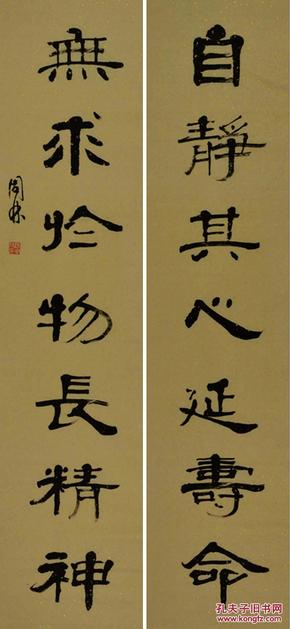 自靜其心延壽命
無求於物長精神
周林
孔夫子旧书网
www.kongfz.com